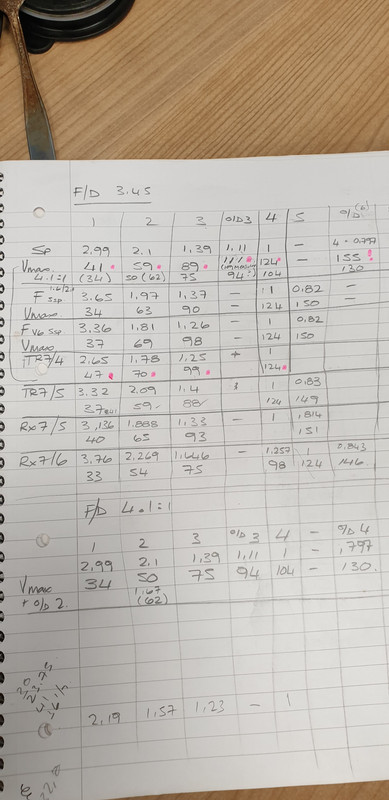 F/D 3.45
1 2 3 O/D3 4 5 O/D
Sp 2.99 2.1 1.39 1.11 1 - 4 = 0.797
Vmax 41 59 89 111 124 - 155
4.1=1 (34) 50 (62) 75 94 104 130
F 5sp 3.65 1.97 1.37 1 0.82 -
Vmax 34 63 90 - 124 150 -
F V6 5sp 3.36 1.81 1.26 - 1 0.82
Vmax 37 69 98 - 124 150
TR7/4 2.65 1.78 1.25 1
47 70 99 124
TR7/5 3.32 2.09 1.4 1 0.83
37 59 88 124 149
Rx7/5 3.136 1.888 1.33 - 1 .814
40 65 93 151
Rx7/6 3.76 2.269 1.646 - 1.257 1 0.843
33 54 75 98 124 146
F/D 4.1=1
1 2 3 O/D 3 4 - O/D 4
2.99 2.1 1.39 1.11 1 - .797
Vmax 34 50 75 94 104 - 130.
+ O/D 2 1.67
(62)
2.19 1.57 1.23 - 1